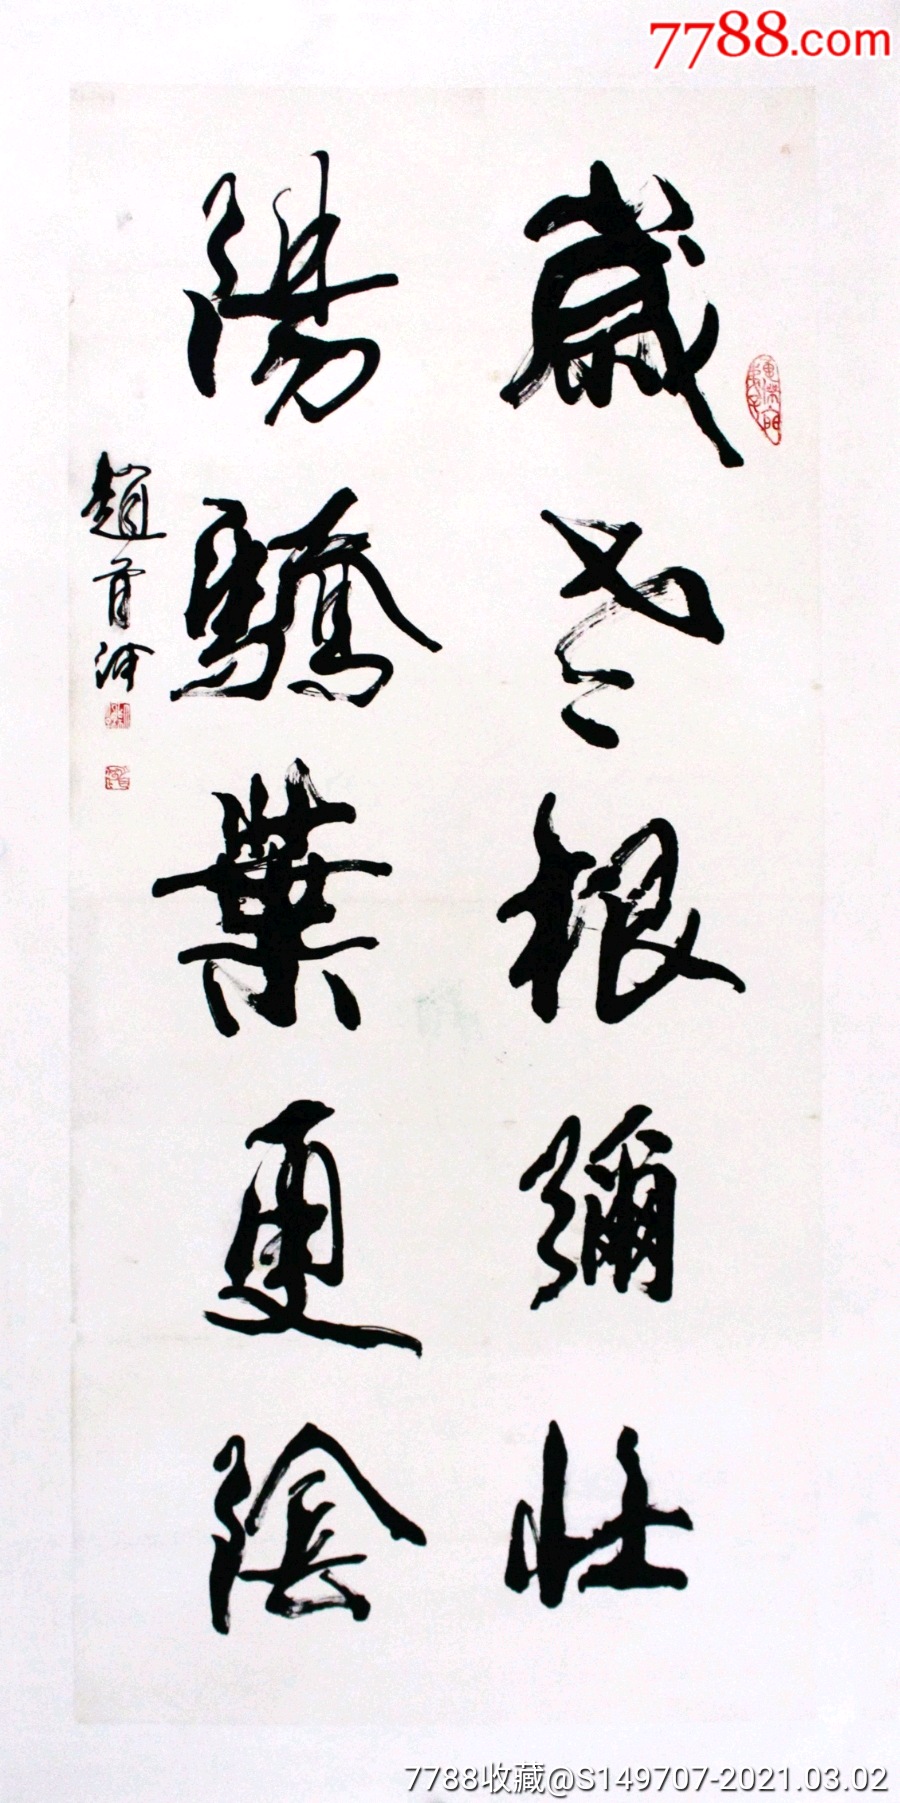 7788.com
歲老根彌壯
陽驕葉更陰
趙首涂
7788收藏@S149707-2021.03.02